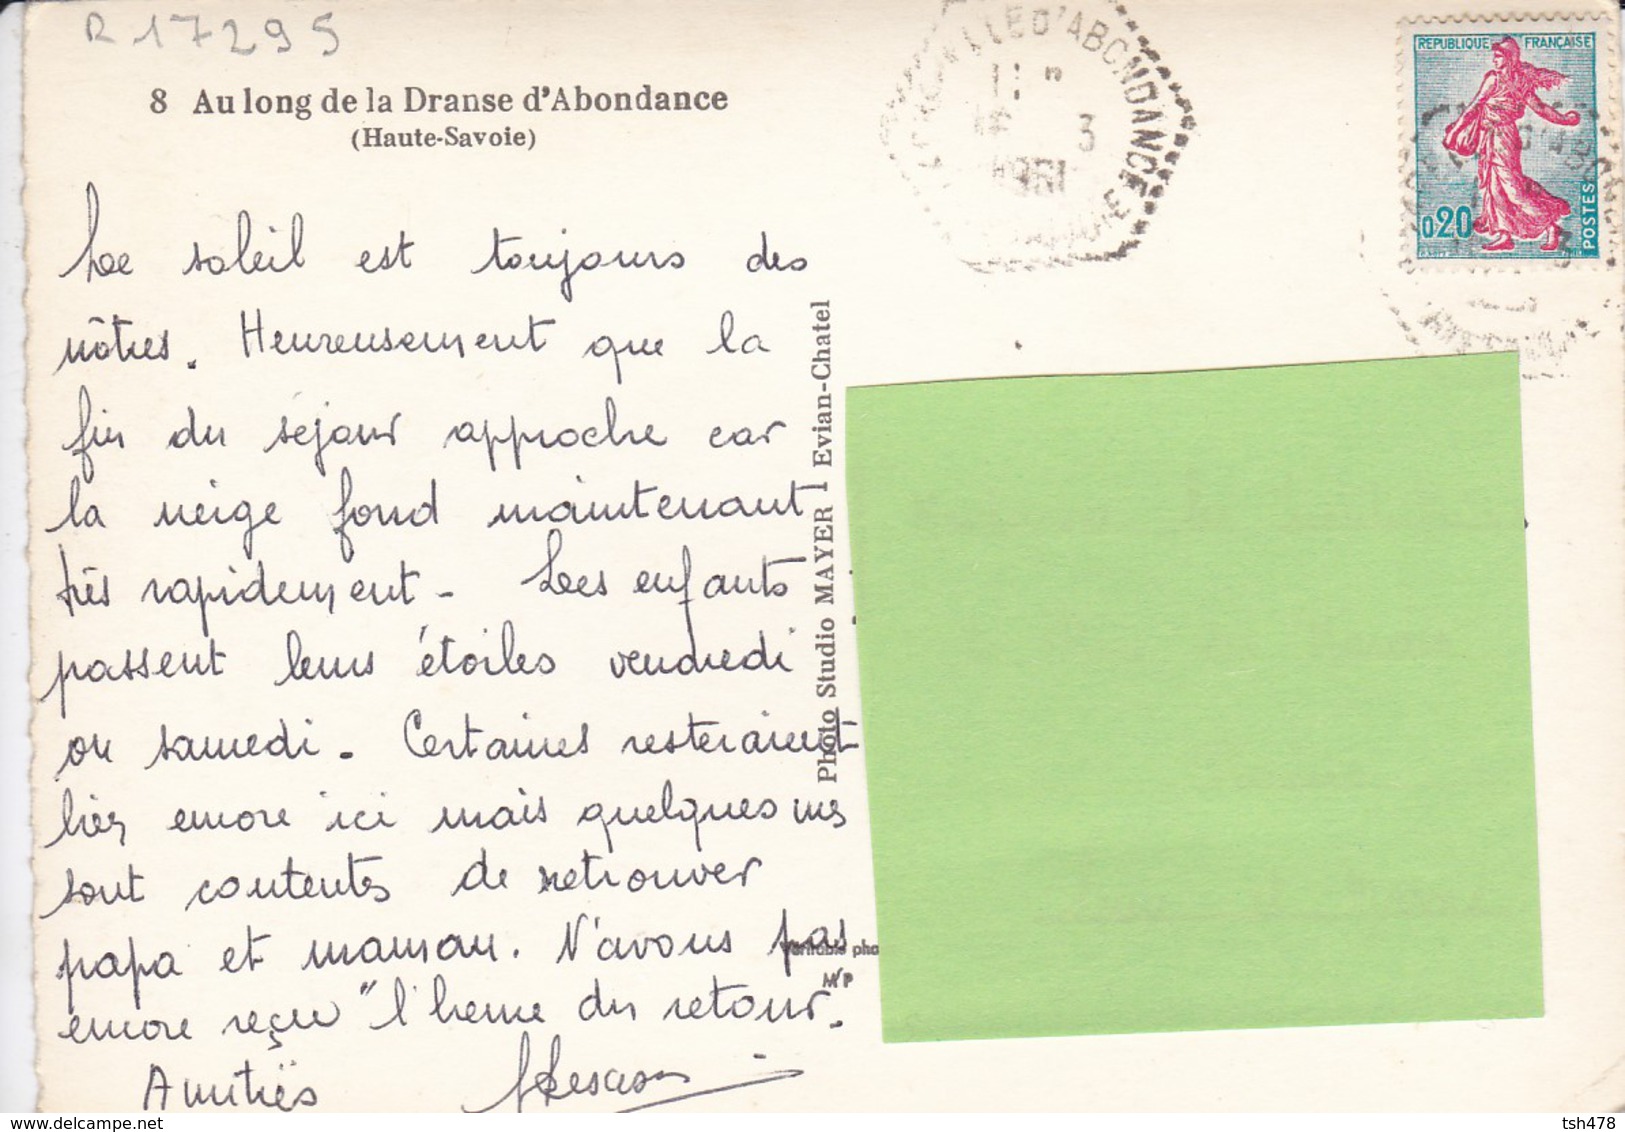 R 17295
8 Au long de la Dranse d'Abondance
(Haute-Savoie)
Le soleil est toujours des
nôtres. Heureusement que la
fin du séjour approche car
la neige fond maintenant
très rapidement - Les enfants
passent leurs étoiles vendredi
ou samedi. Certaines resteraient
bien encore ici mais quelques unes
sont contentes de retrouver
papa et maman. N'avons pas
encore reçu "l'heure du retour.
Amitiés
Photo Studio MAYER - Evian-Chatel
Véritable pho
M/P
D'ABONDANCE
3
1961
REPUBLIQUE FRANÇAISE
0,20
POSTES
delcampe.net
tsh478